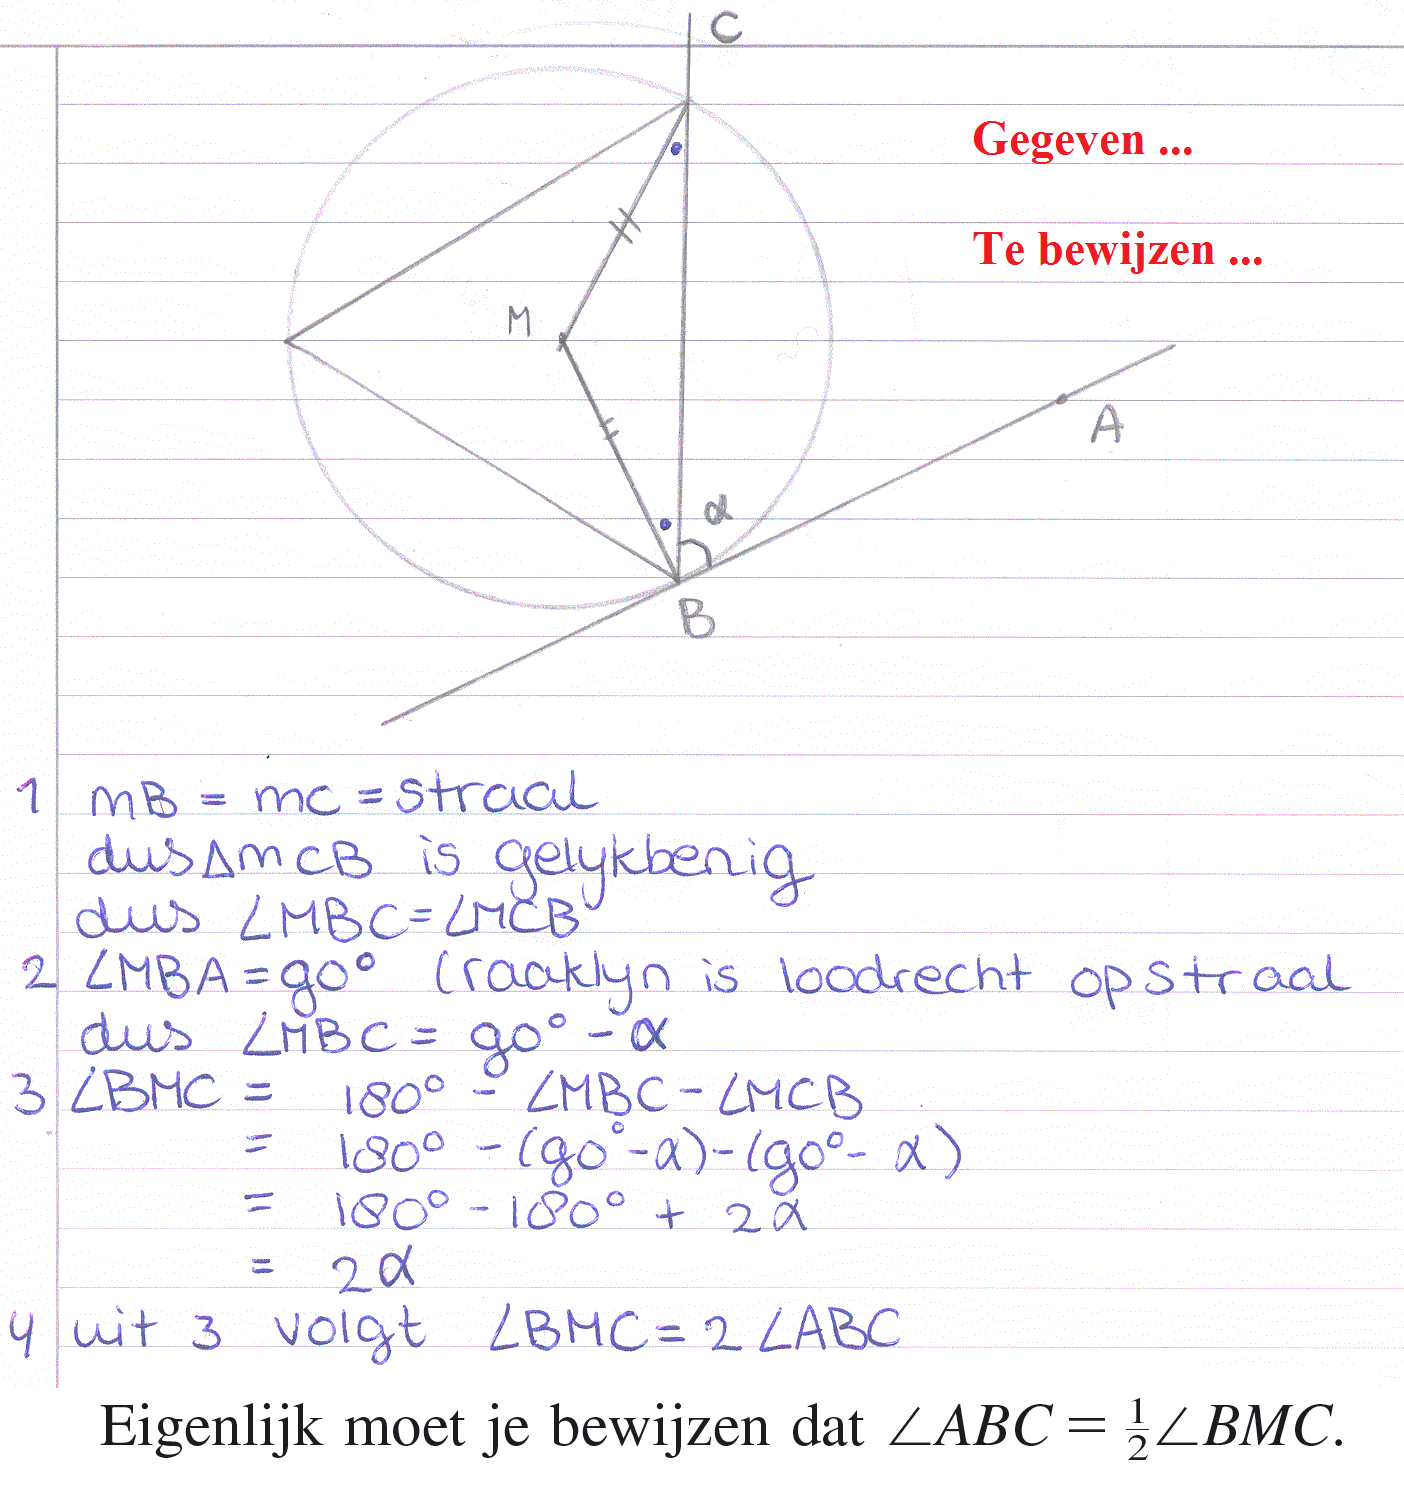 C
Gegeven ...
Te bewijzen ...
M
A
α
B
1 MB = MC = straal
dus △MCB is gelykbenig
dus ∠MBC = ∠MCB
2 ∠MBA = 90° (raaklyn is loodrecht op straal
dus ∠MBC = 90° - α
3 ∠BMC = 180° - ∠MBC - ∠MCB
= 180° - (90° - α) - (90° - α)
= 180° - 180° + 2α
= 2α
4 uit 3 volgt ∠BMC = 2 ∠ABC
Eigenlijk moet je bewijzen dat ∠ABC = ½∠BMC.